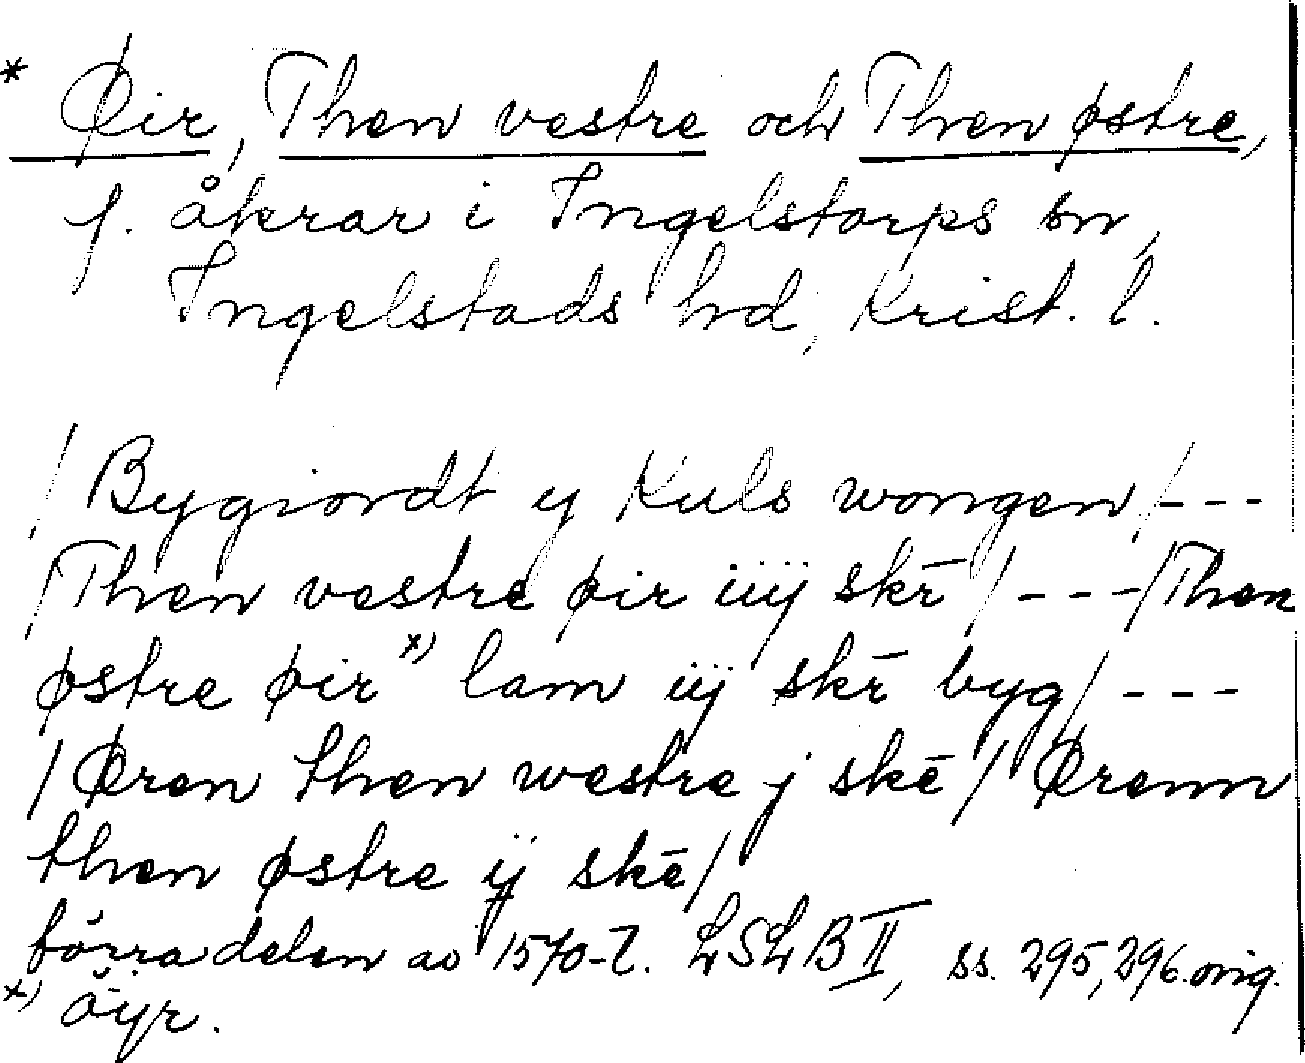 * Øir, Then vestre och Then østre,
f. åkrar i Ingelstorps sn,
Ingelstads hd, Krist. l.
/Bygiordt y Kuls wongen/---
/Then vestre øir iiij skr̄/---/Then
østre øir ˣ⁾ lam iij skr̄ byg/---
/Øren then westre j skē/Ørenn
then østre ij skē/
förra delen av 1570-t. LSLB II, ss. 295, 296. orig.
ˣ⁾ öÿr.